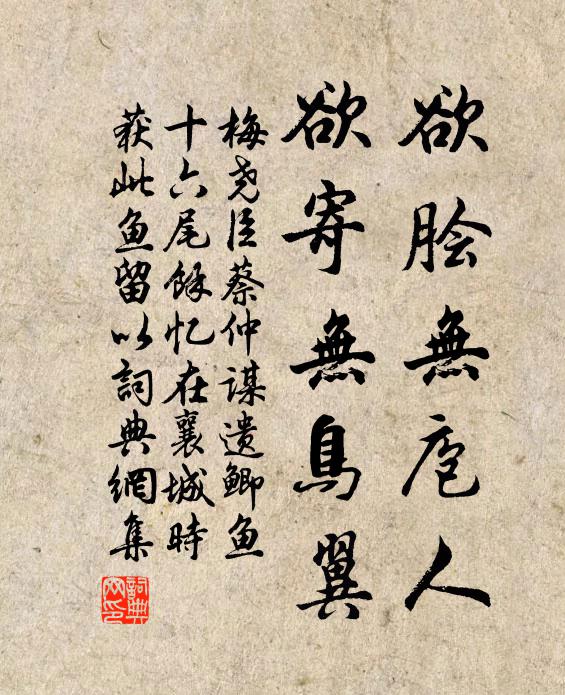 欲脍無庖人
欲寄無鳥翼
梅尧臣蔡仲谋遗鲫鱼
十六尾馀忆在襄城時
获此鱼留以詞典網集
詞典
网印